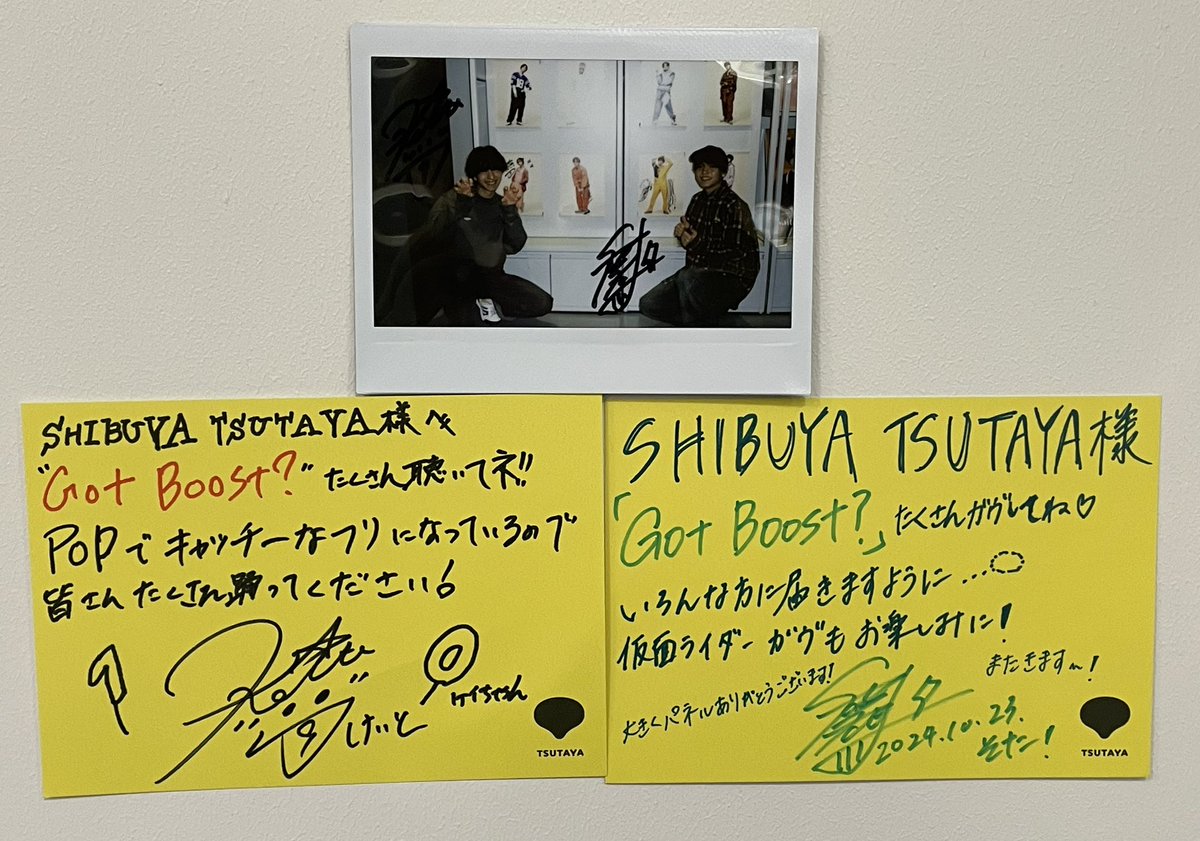 SHIBUYA TSUTAYA様へ
"Got Boost?" たくさん聴いてネ!!
POPでキャッチーなフリになっているので
皆さんたくさん踊ってください!
けいちゃん
けいと
TSUTAYA
SHIBUYA TSUTAYA様
「Got Boost?」たくさんガヴしてね♡
いろんな方に届きますように...
仮面ライダーガヴもお楽しみに!
大きくパネルありがとうございます!
またきますm!
2024.10.23.
そた
TSUTAYA